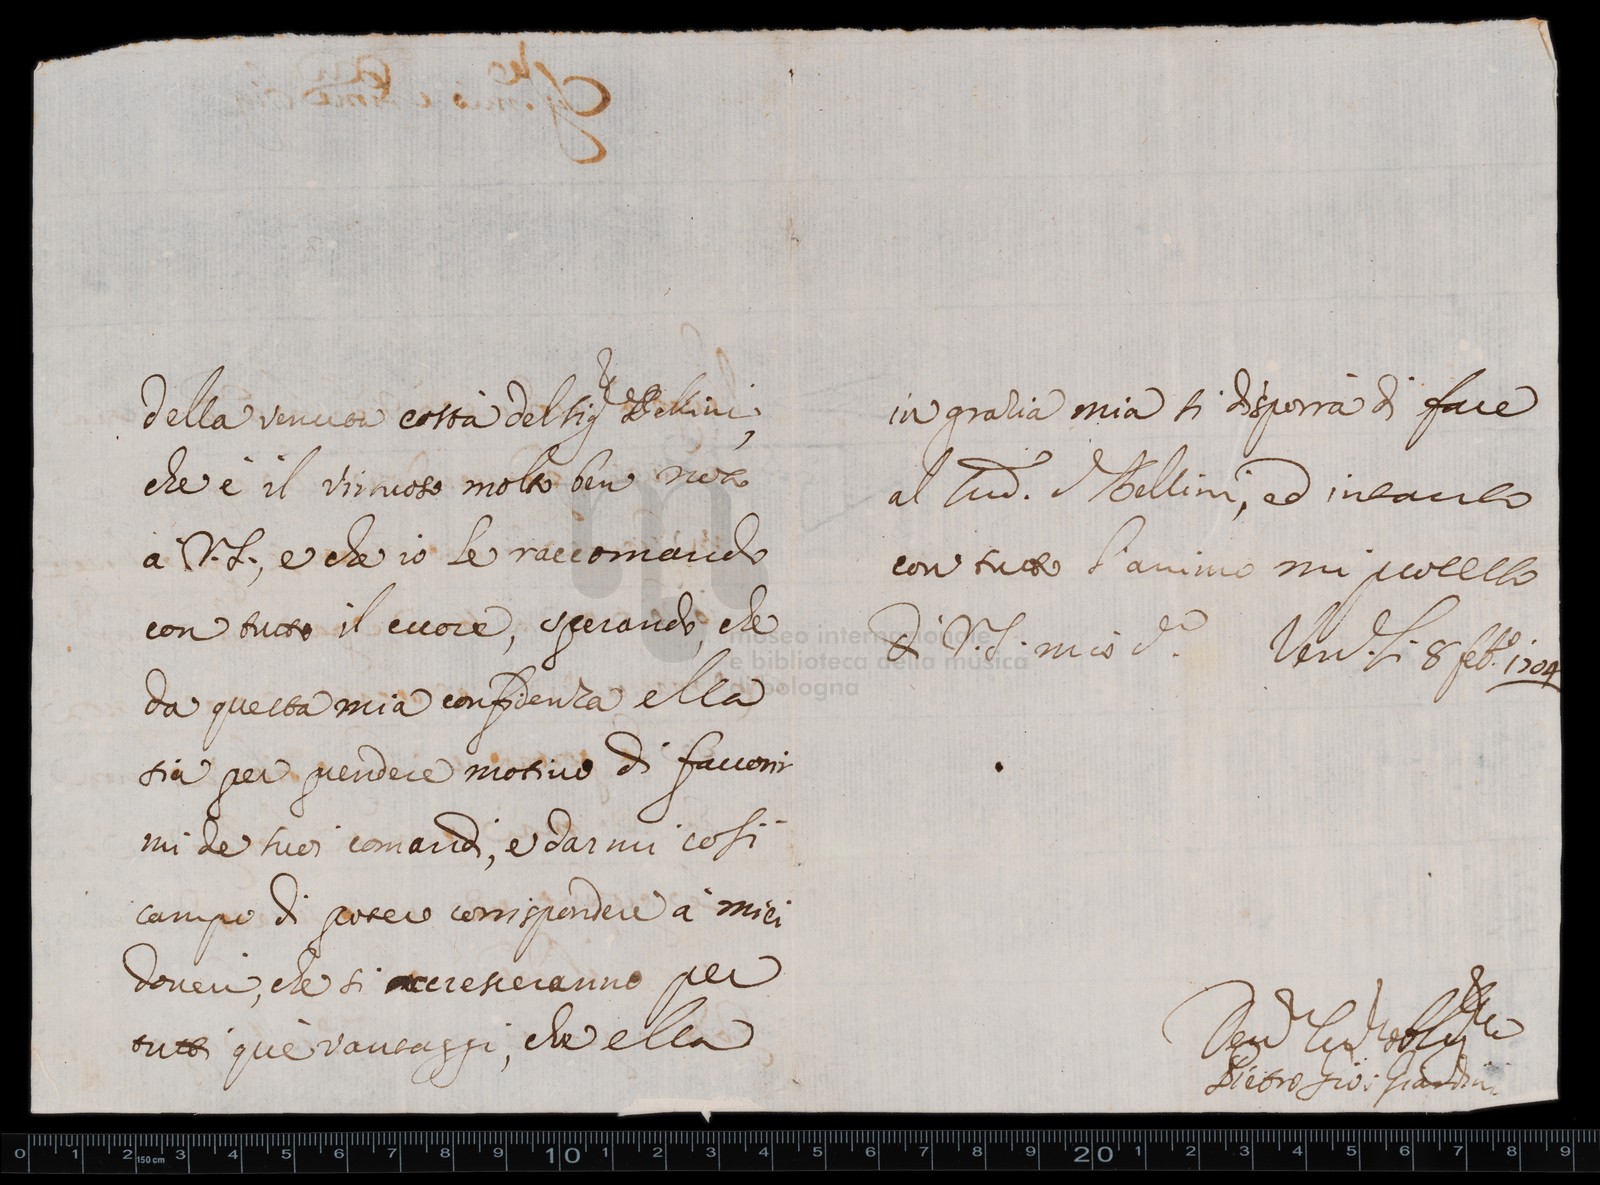 della venuta costà del Sig.r Bellini,
che è il virtuoso molto ben noto
a V.S., e che io le raccomando
con tutto il cuore, sperando, che
da questa mia confidenza ella
sia per prendere motivo di favorir
mi de suoi comandi, e darmi così
campo di poter corrispondere a miei
doveri, che si accresceranno per
tutti què vantaggi, che ella
in grazia mia si disporrà di fare
al Sud. Bellini, ed intanto
con tutto l'animo mi protesto
Di V.S. mio S.r Ven.a li 8 feb.o 1704
Dev.mo Ser.re obbl.mo
Pietro Gio: Giardini
museo internazionale
e biblioteca della musica
di bologna
0 1 2 150 cm 3 4 5 6 7 8 9 10 1 2 3 4 5 6 7 8 9 20 1 2 3 4 5 6 7 8 9